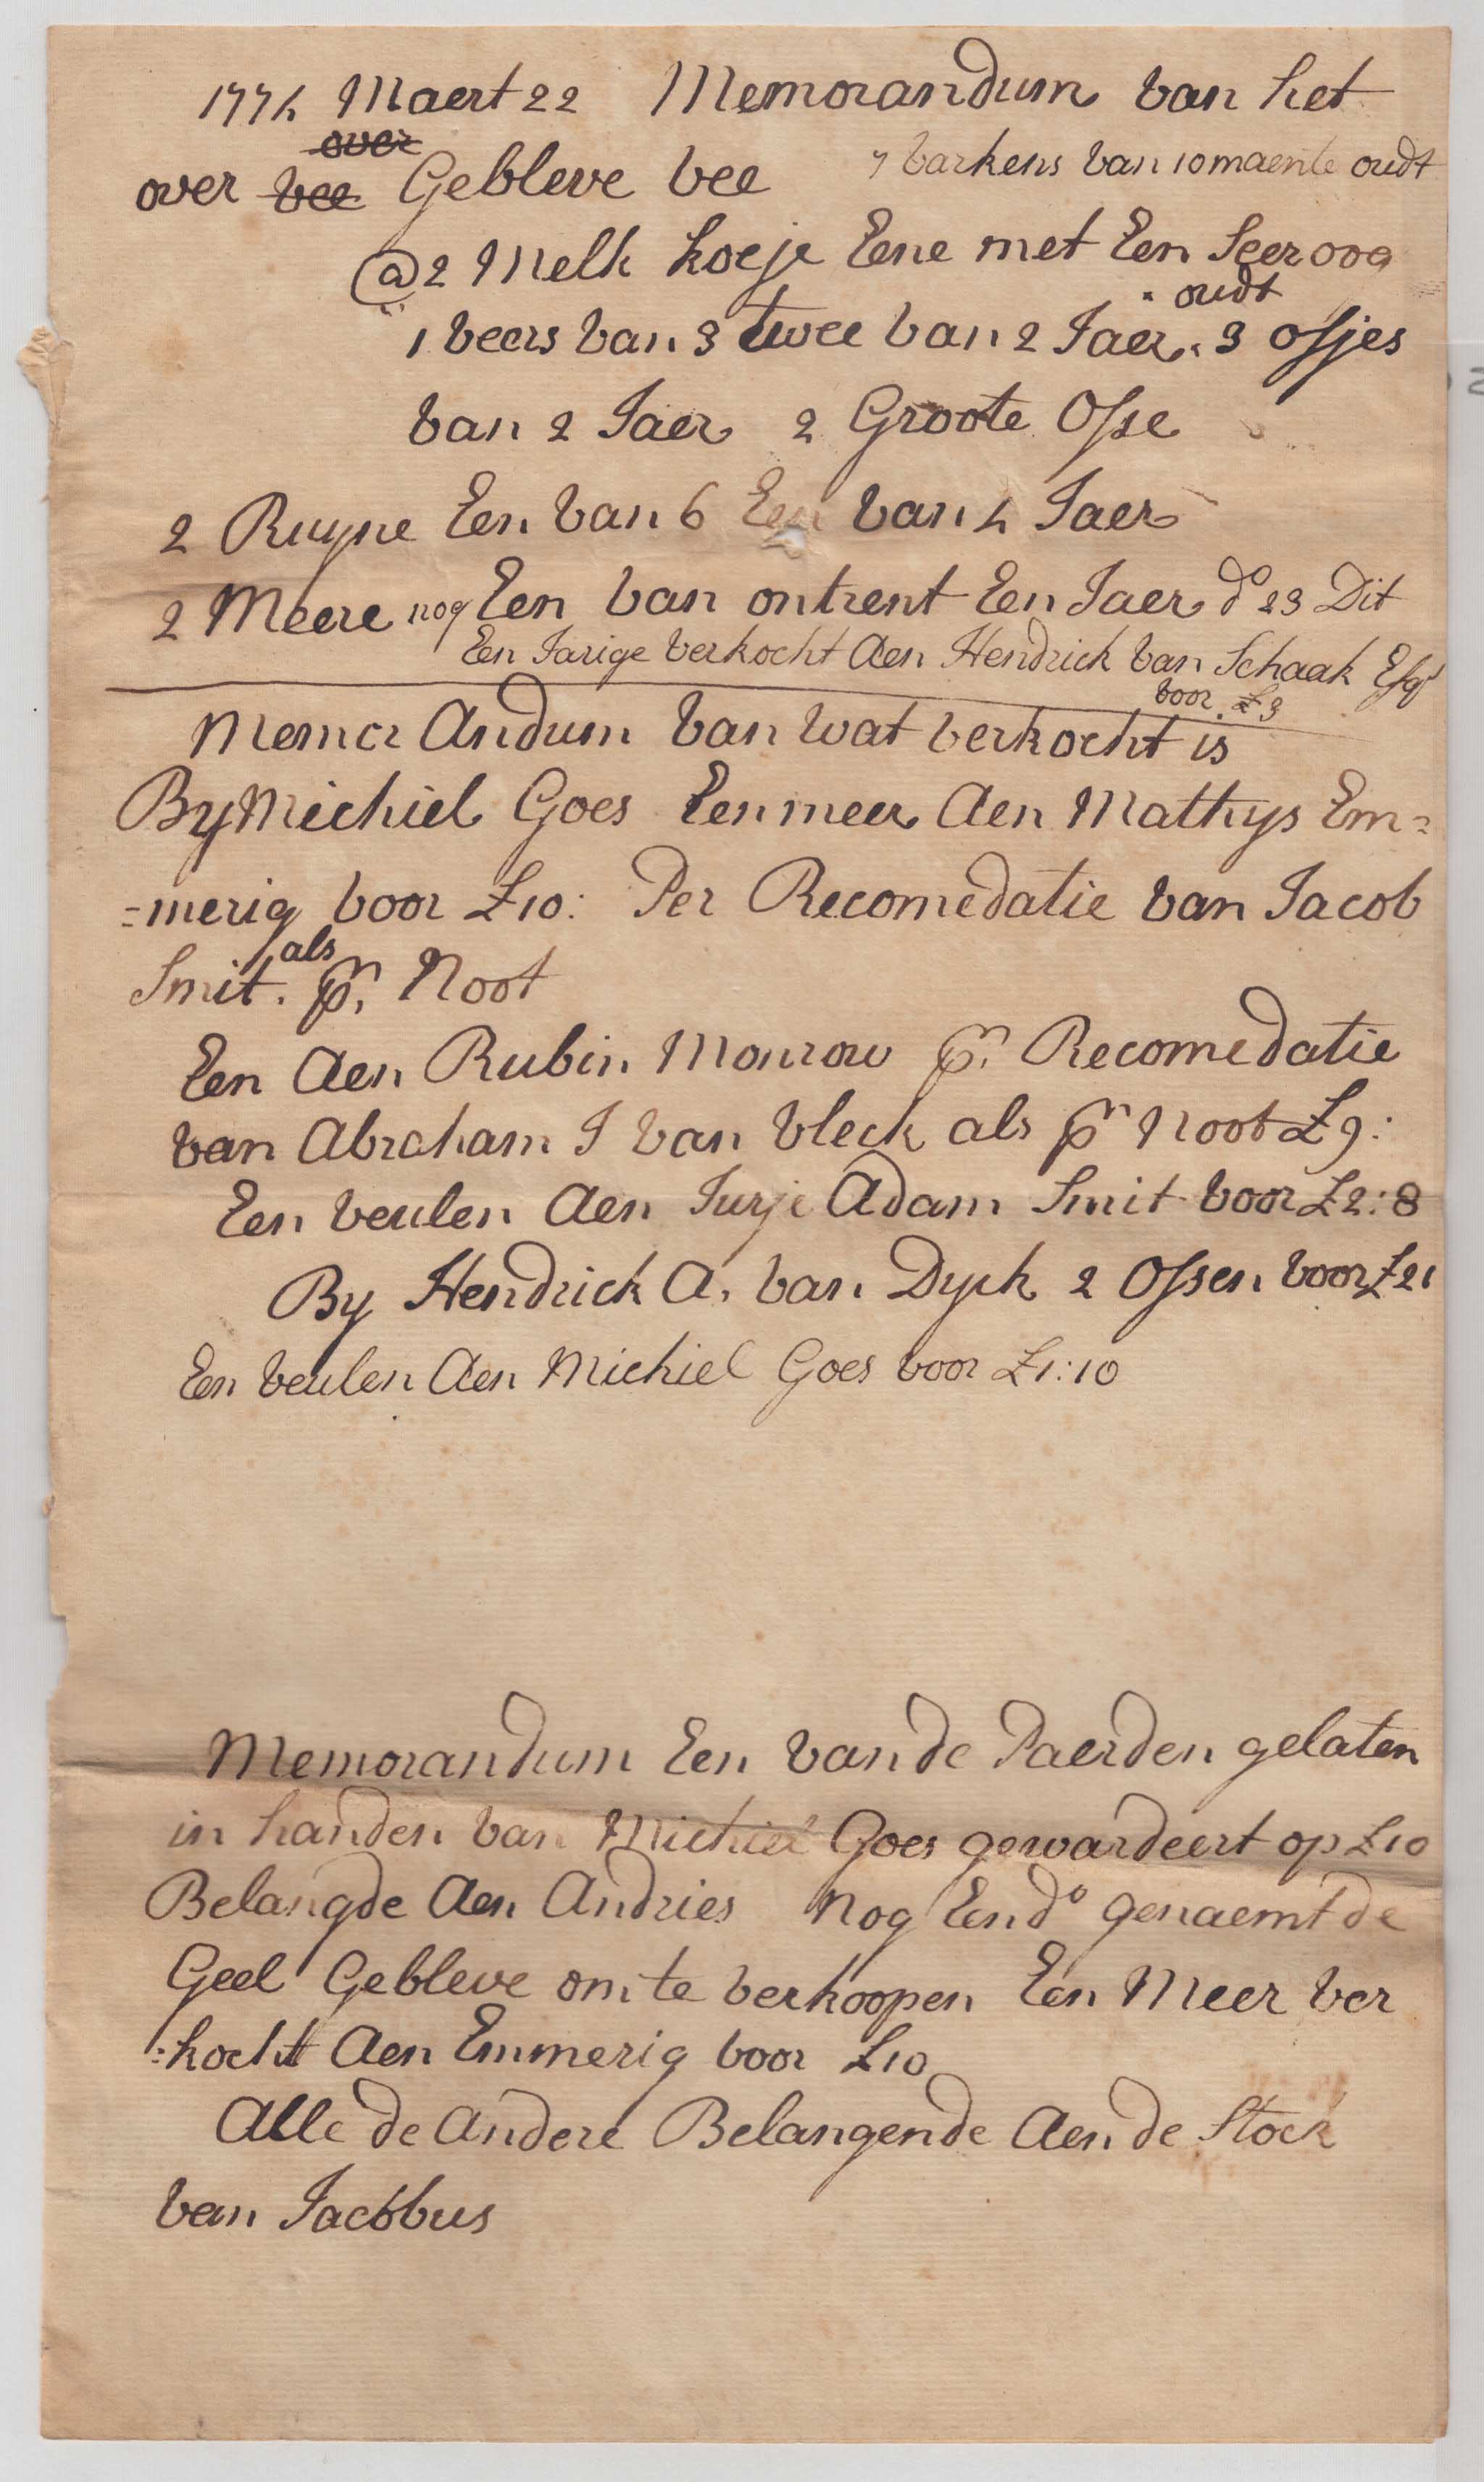 1774 Maert 22 Memorandum van het
over
over vee Gebleve vee 7 varkens van 10 maende oudt
@ 2 Melk koeje Eene met Een Seer oog
oudt
1 veers van 3 twee van 2 Jaer. 3 ossjes
van 2 Jaer 2 Groote Osse
2 Ruyne Een van 6 Een van 4 Jaer
2 Meere nog Een van ontrent Een Jaer do 23 Dit
Een Jarige verkocht Aen Hendrick van Schaak Esqr
voor £3
Memor Andum van wat verkocht is
By Michiel Goes Een meer Aen Mathys Em=
=merig voor £10: Per Recomedatie van Jacob
als
Smit. pr. Noot
Een Aen Rubin Monrow pr. Recomedatie
van Abraham J van vleck als pr Noot £9:
Een veulen Aen Jurje Adam Smit voor £2:8
By Hendrick A. van Dyck 2 Ossen voor £21
Een veulen Aen Michiel Goes voor £1:10
Memorandum Een van de Paerden gelaten
in handen van Michiel Goes gewardeert op £10
Belangde Aen Andries Nog Een do genaemt de
Geel Gebleve om te verkoopen Een Meer ver
:kocht Aen Emmerig voor £10
Alle de Andere Belangende Aen de Stock
van Jacobus